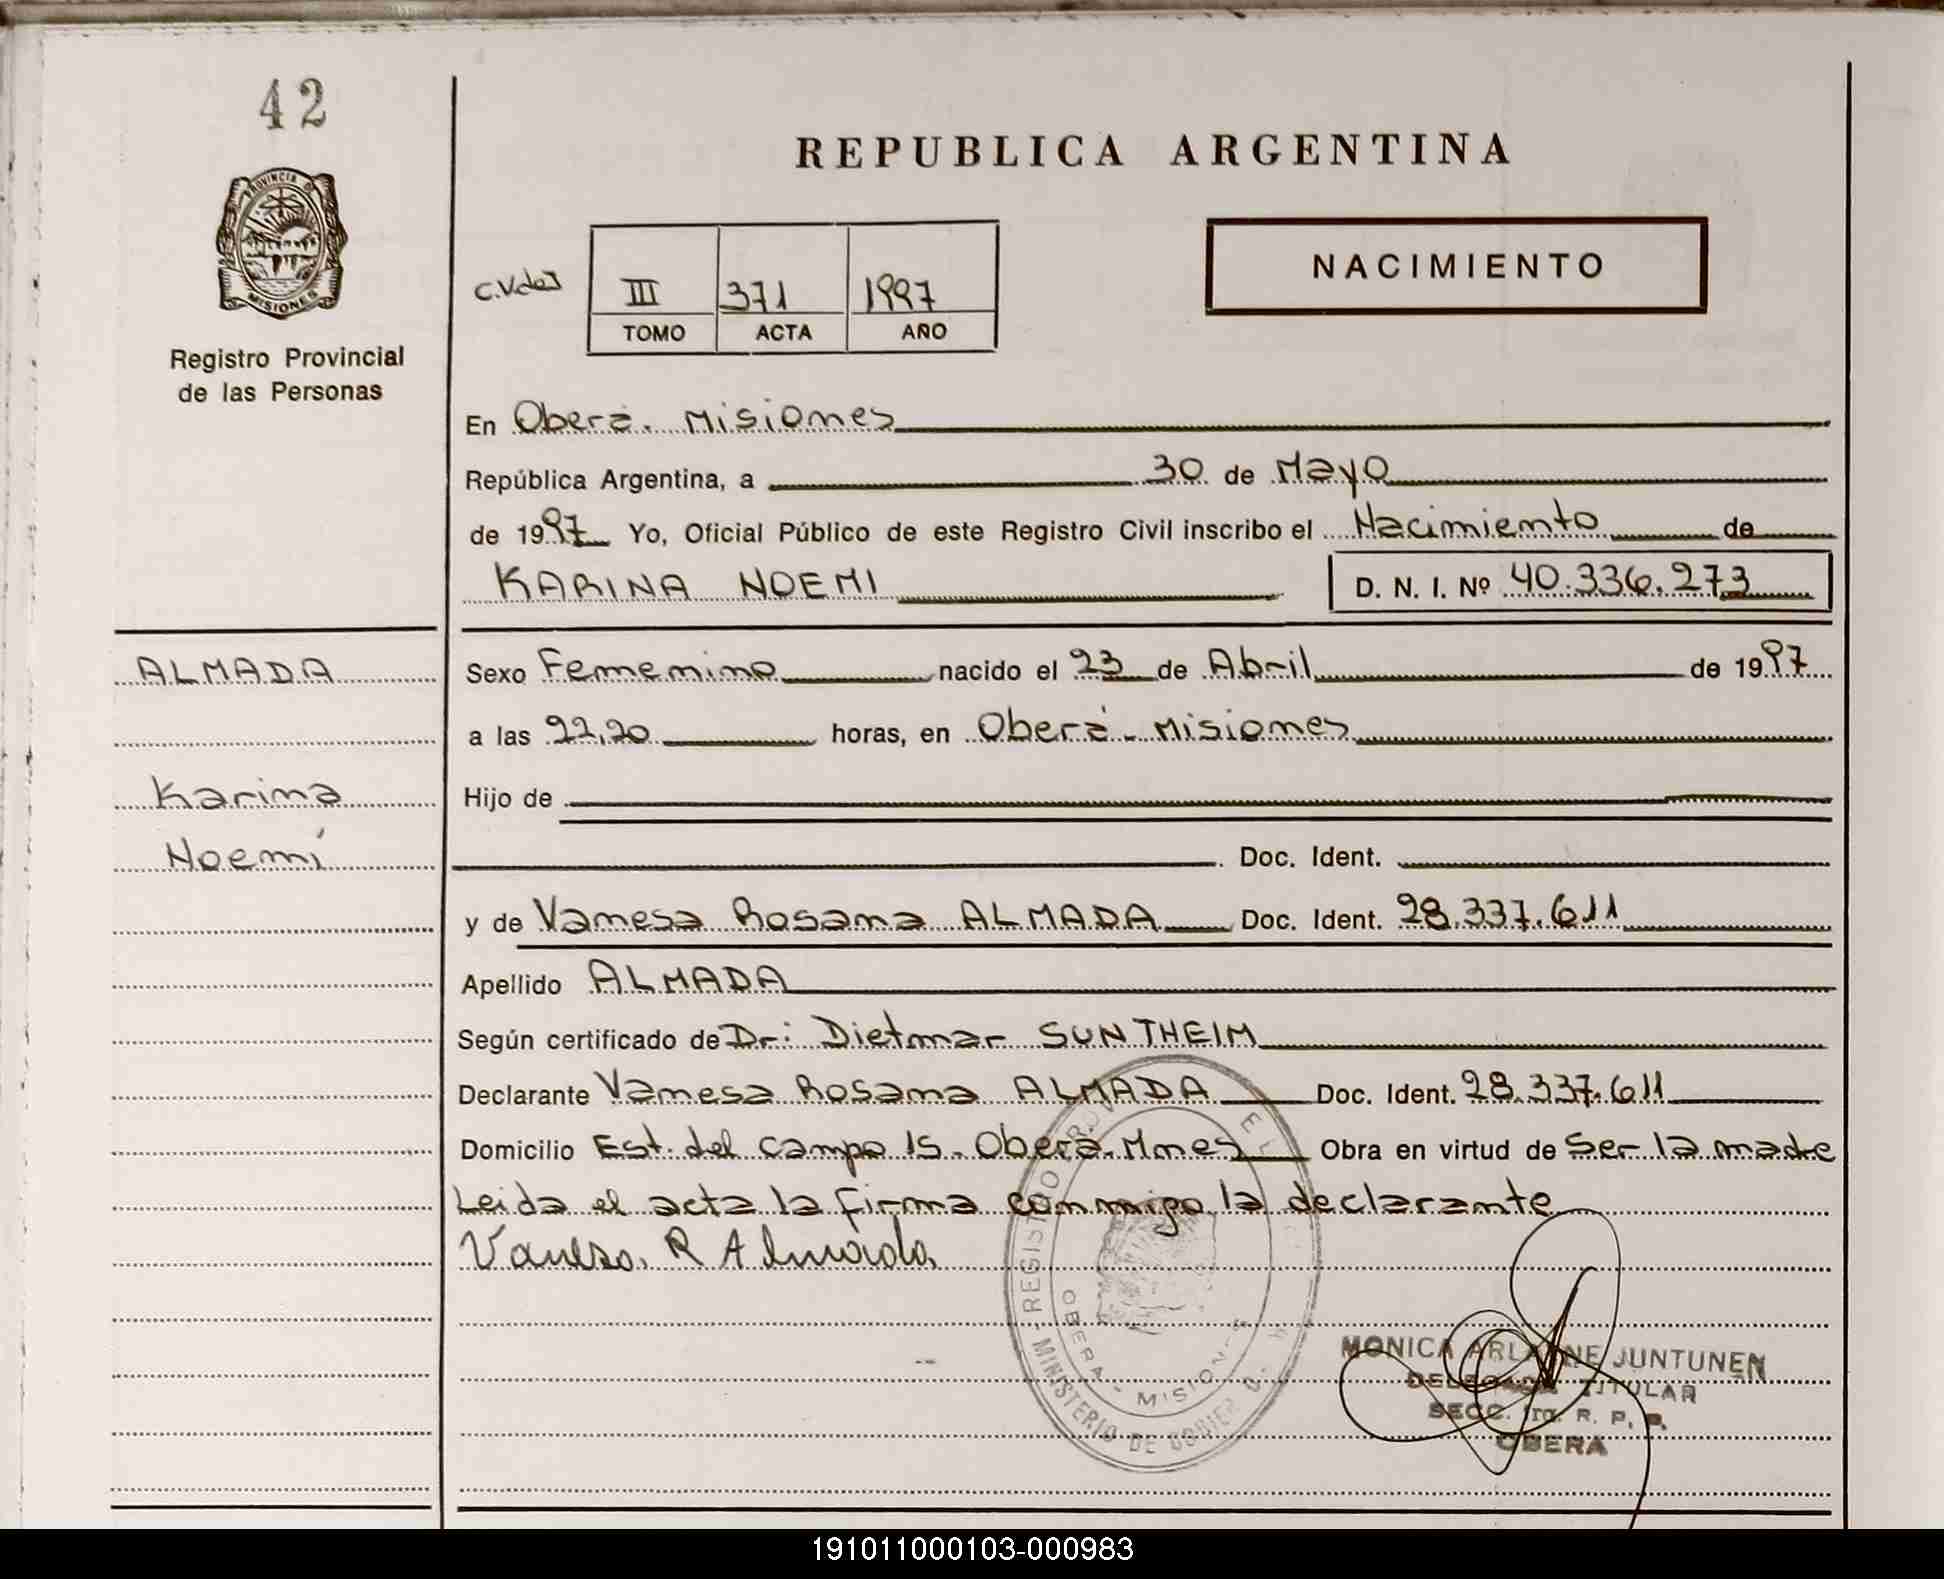 42
PROVINCIA DE
MISIONES
Registro Provincial
de las Personas
REPUBLICA ARGENTINA
NACIMIENTO
III 371 1997
TOMO ACTA AÑO
En Oberá. Misiones
República Argentina, a 30 de Mayo
de 1997 Yo, Oficial Público de este Registro Civil inscribo el Nacimiento de
KARINA NOEMI D. N. I. Nº 40.336.273
ALMADA
Karina
Noemí
Sexo Femenino nacido el 23 de Abril de 1997
a las 22,20 horas, en Oberá - Misiones
Hijo de
Doc. Ident.
y de Vanesa Rosana ALMADA Doc. Ident. 28.337.611
Apellido ALMADA
Según certificado de Dr: Dietmar SUNTHEIM
Declarante Vanesa Rosana ALMADA Doc. Ident. 28.337.611
Domicilio Est. del Campo 15. Oberá. Mnes Obra en virtud de Ser la madre
Leida el acta la firma conmigo la declarante
Vanesa R Almada
OBERA - MISIONES
MINISTERIO DE GOBIERNO
MONICA ARLAINE JUNTUNEN
DELEGADA TITULAR
SECC. 1ra. R. P. P.
OBERA
191011000103-000983